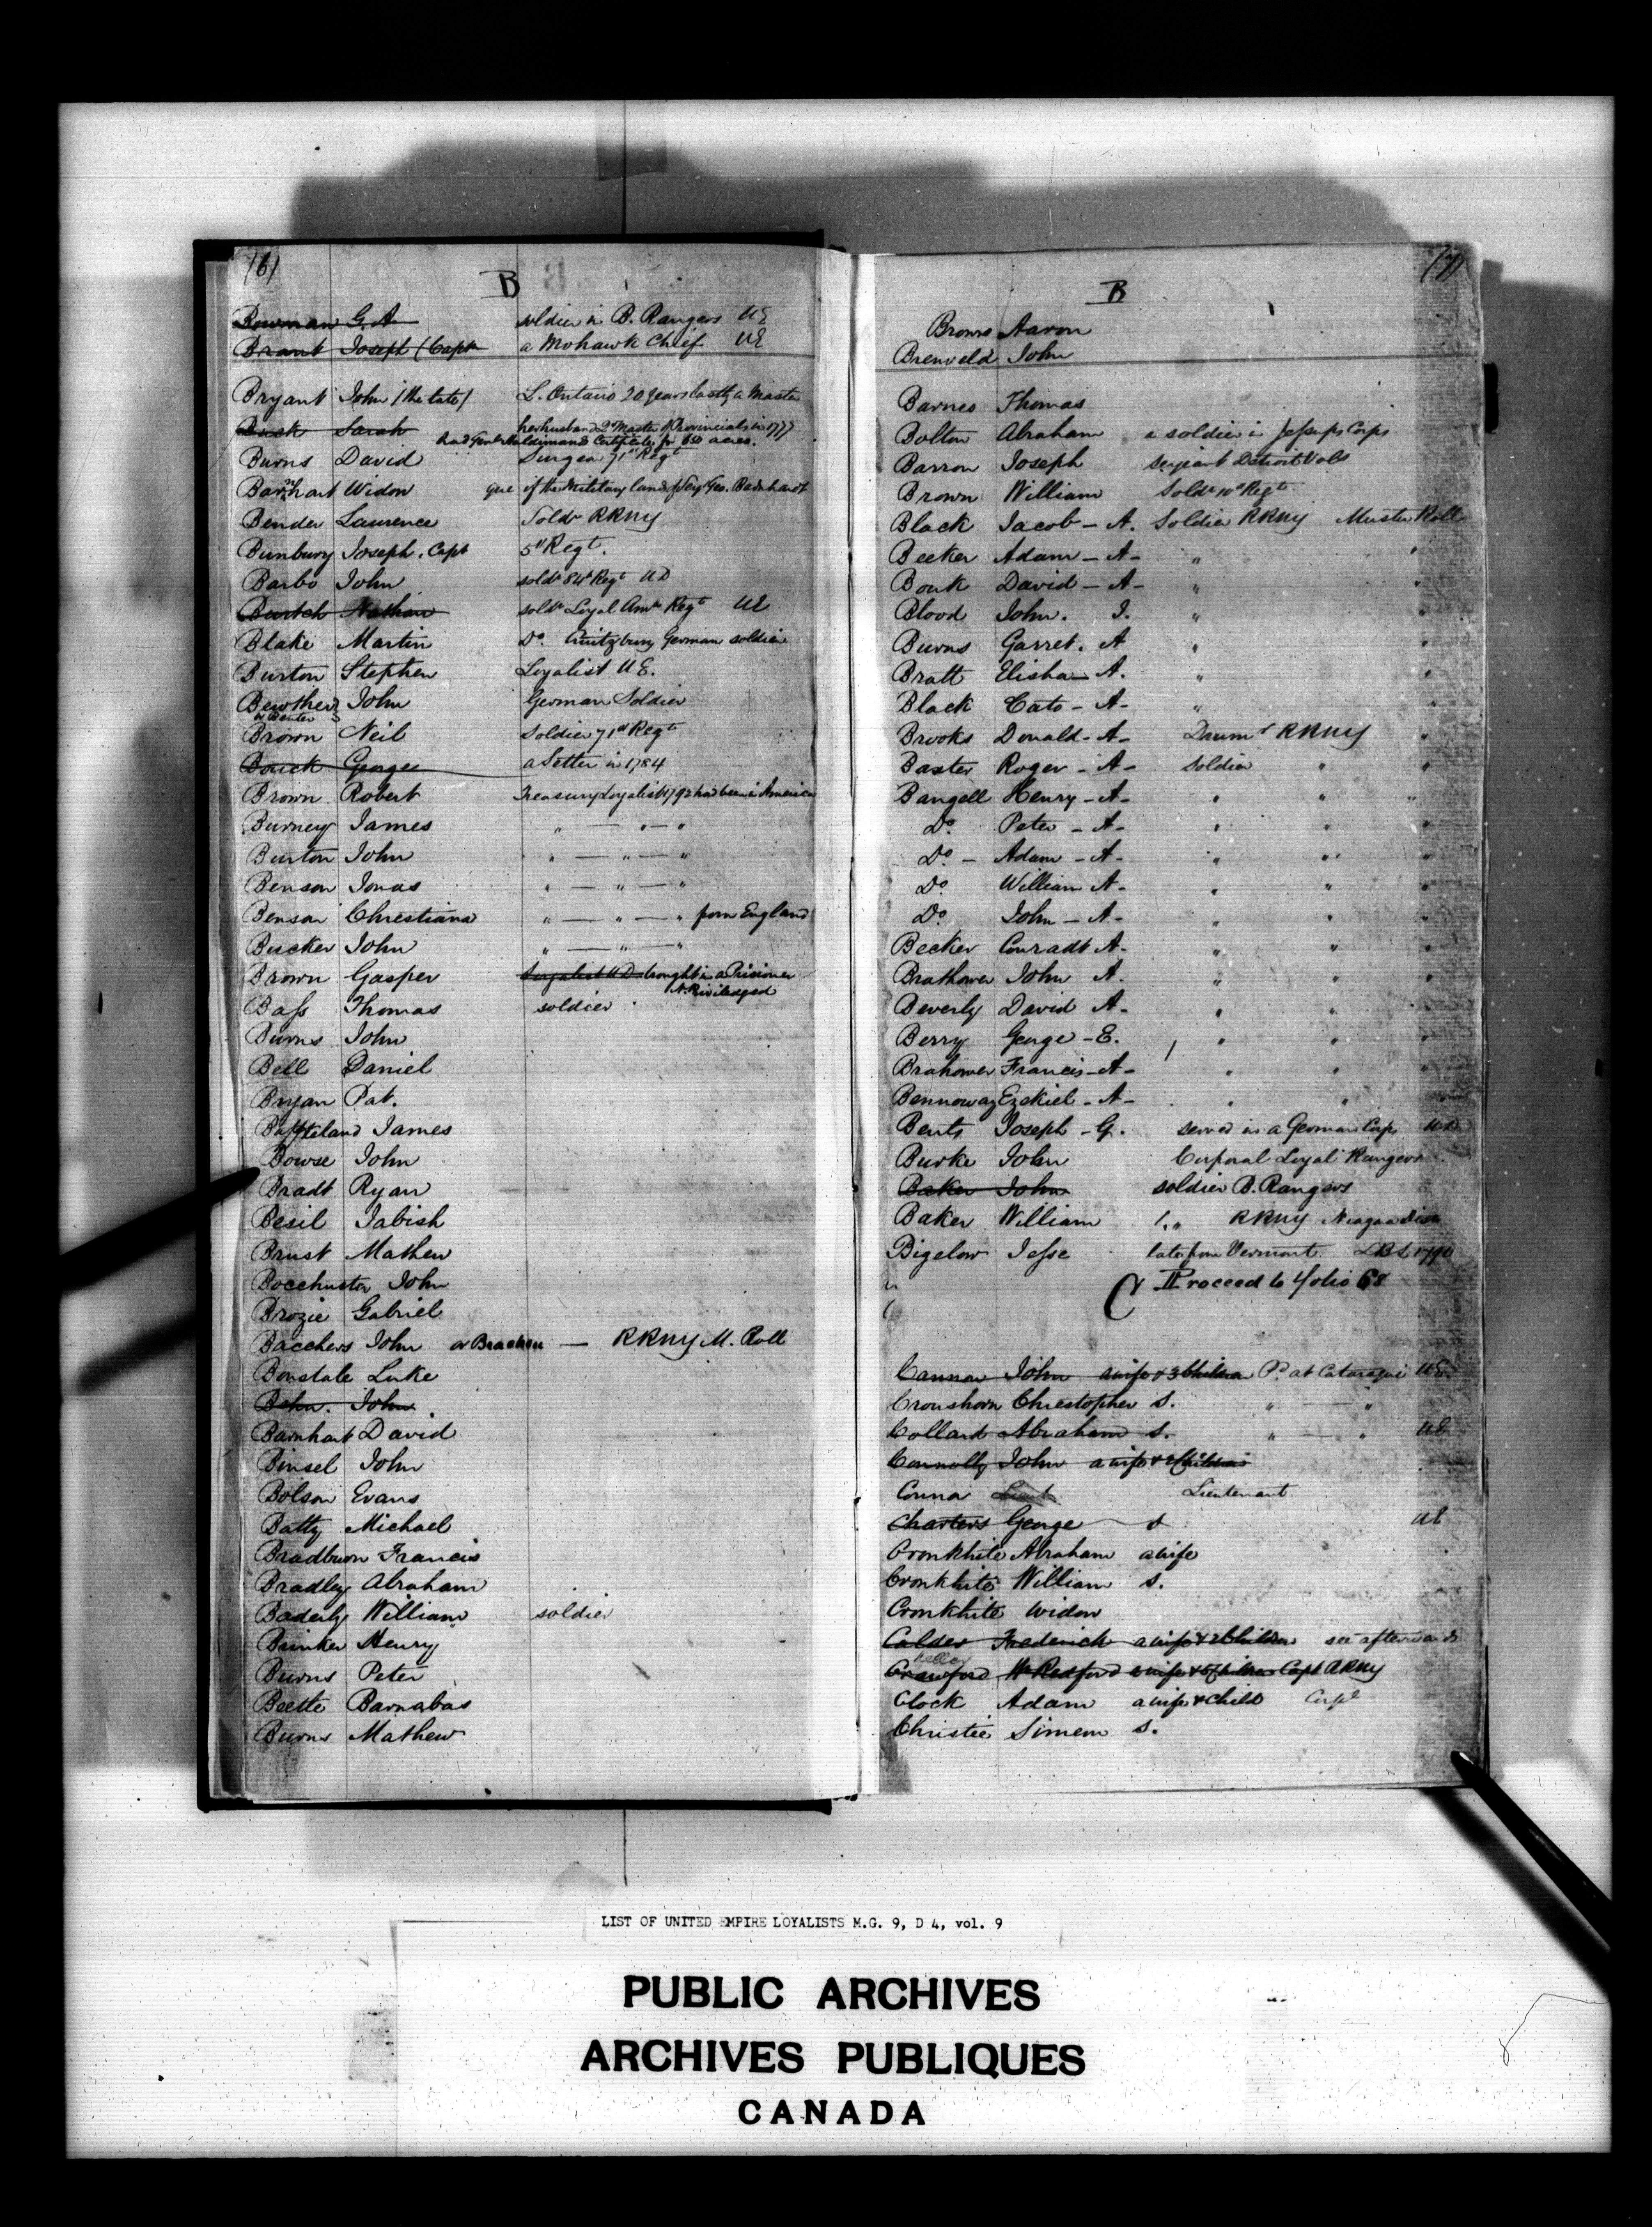 (6)
B
Bowman G. A soldier in B. Rangers UE
Brant Joseph (Capt a Mohawk Chief UE
Bryant John (the late) L. Ontario 20 years lastly a Master
Busk Sarah her husband 2d Master of Provincials in 1777
had Genl Haldimands Certificate for 650 acres.
Burns David Surgeon 71st Regt
Barnhart Widow que if the Military lands of Serjt Geo. Barnhardt
Bender Laurence Soldr RRNY
Bunbury Joseph. Capt 5th Regt.
Barbo John soldr 84th Regt UD
Burtch Nathan soldr Loyal Amn Regt UE
Blake Martin Do. German soldier
Burton Stephen Loyalist UE.
Bewther John German Soldier
or Beuter
Brown Neil Soldier 71st Regt
Bouck George a Setter in 1784
Brown Robert Treasury Loyalist 1792 had been in America
Burney James " — " — "
Burton John " — " — "
Benson Jonas " — " — "
Benson Christiana " — " — " from England
Bucker John " — " — "
Brown Gasper Loyalist UD brought in a Prisoner
N. Priviledged
Bass Thomas soldier
Burns John
Bell Daniel
Bryan Pat.
James
Bowse John
Bradt Ryan
Besil Jabish
Brust Mathew
Bocchuster John
Brozie Gabriel
Bacchers John or Bracken — RRNY M. Roll
Bonstale Luke
Behn. John
Barnhart David
Binsel John
Bolson Evans
Batty Michael
Bradburn Francis
Bradley Abraham
Baderly William soldier
Brinker Henry
Burns Peter
Beette Barnabas
Burns Mathew
(7)
B
Brown Aaron
Breuveld John
Barnes Thomas
Bolton Abraham a soldier in Jessups Corps
Barron Joseph serjeant Detroit Vols
Brown William Soldr 10th Regt
Black Jacob - A. Soldier RRNY Muster Roll
Becker Adam - A - " "
Bouk David - A - " "
Blood John. I. " "
Burns Garret. A " "
Bratt Elisha - A. " "
Black Cato - A - " "
Brooks Donald - A - Drumr RRNY "
Baxter Roger - A - Soldier " "
Bangell Henry - A - " " "
Do. Peter - A - " " "
Do. - Adam - A - " " "
Do. William A - " " "
Do John - A - " " "
Becker Conradt A - " " "
Brathower John A. " " "
Beverly David A - " " "
Berry George - E. " " "
Brahower Francis - A - " " "
Bennoway Ezekiel - A - " "
Bents Joseph - G. served in a German Corps UD
Burke John Corporal Loyal Rangers
Baker John soldier B. Rangers
Baker William " RRNY Niagara Dist
Bigelow Jesse late from Vermont LBL 1790
Proceed to folio 68
C
Cannon John a wife & 3 Children P. at Cataraqui UE
Cronshorn Christopher S. " — "
Collard Abraham S. " — " UE
Connolly John a wife & 2 Children
Conna Lieut Lieutenant
Charters George S UE
Cronkhite Abraham a wife
Cronkhite William S.
Cronkhite Widow
Calder Frederick a wife & 2 Children see afterwards
Kelley
Crawford Wm Redford a wife & 5 Children Capt RRNY
Clock Adam a wife & Child Corpl
Christie Simeon S.
LIST OF UNITED EMPIRE LOYALISTS M.G. 9, D 4, vol. 9
PUBLIC ARCHIVES
ARCHIVES PUBLIQUES
CANADA